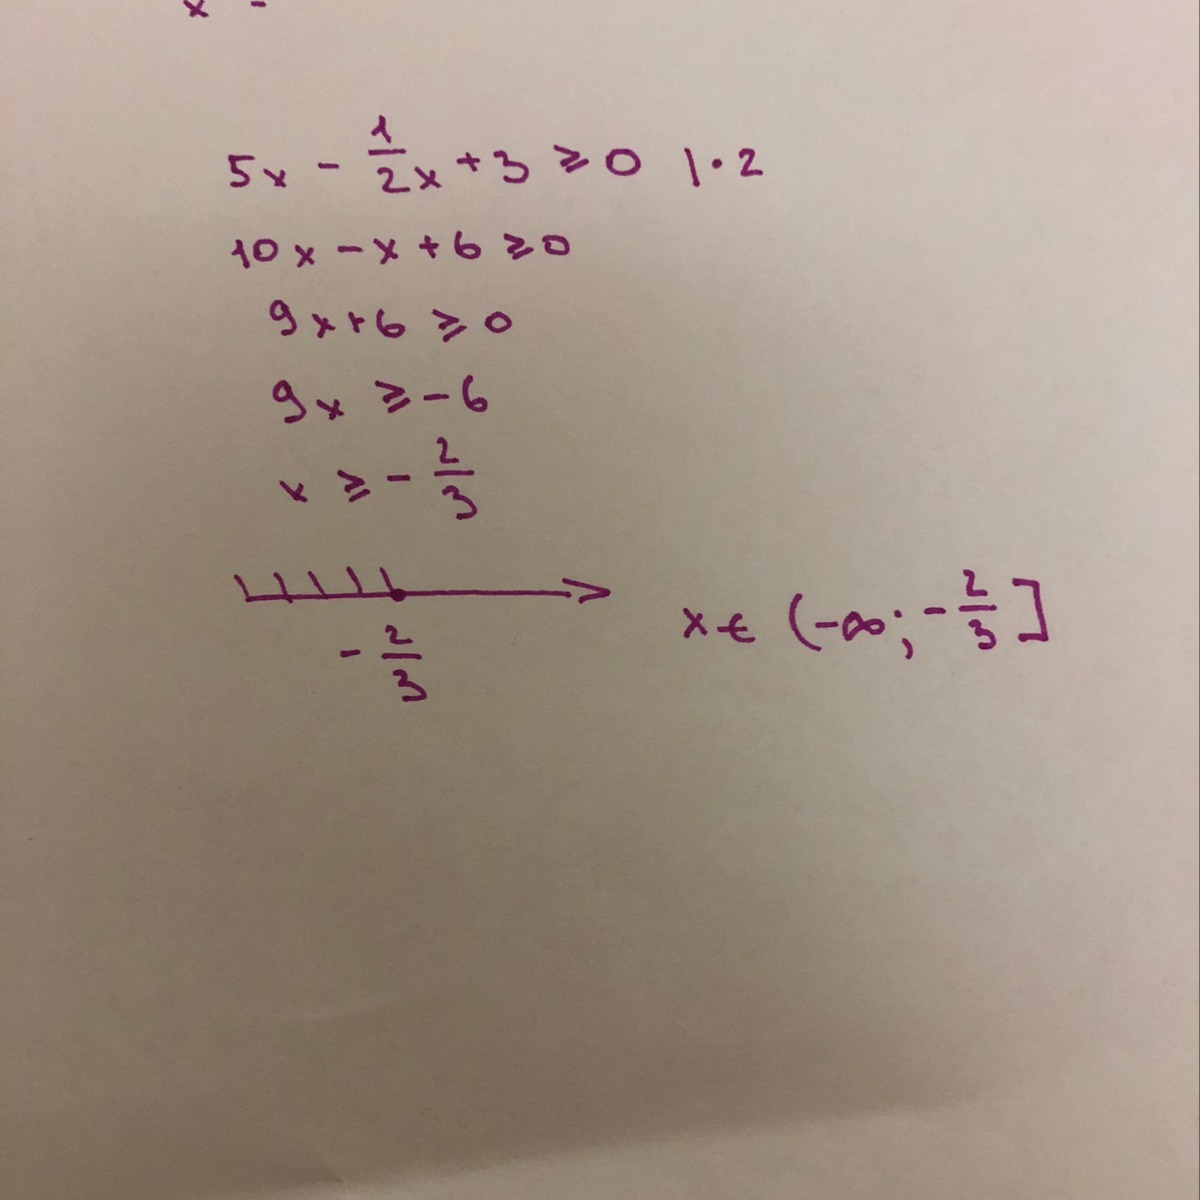 x -
5x - 1/2 x + 3 ≥ 0 | · 2
10x - x + 6 ≥ 0
9x + 6 ≥ 0
9x ≥ - 6
x ≥ - 2/3
- 2/3
x ∈ (-∞; - 2/3]